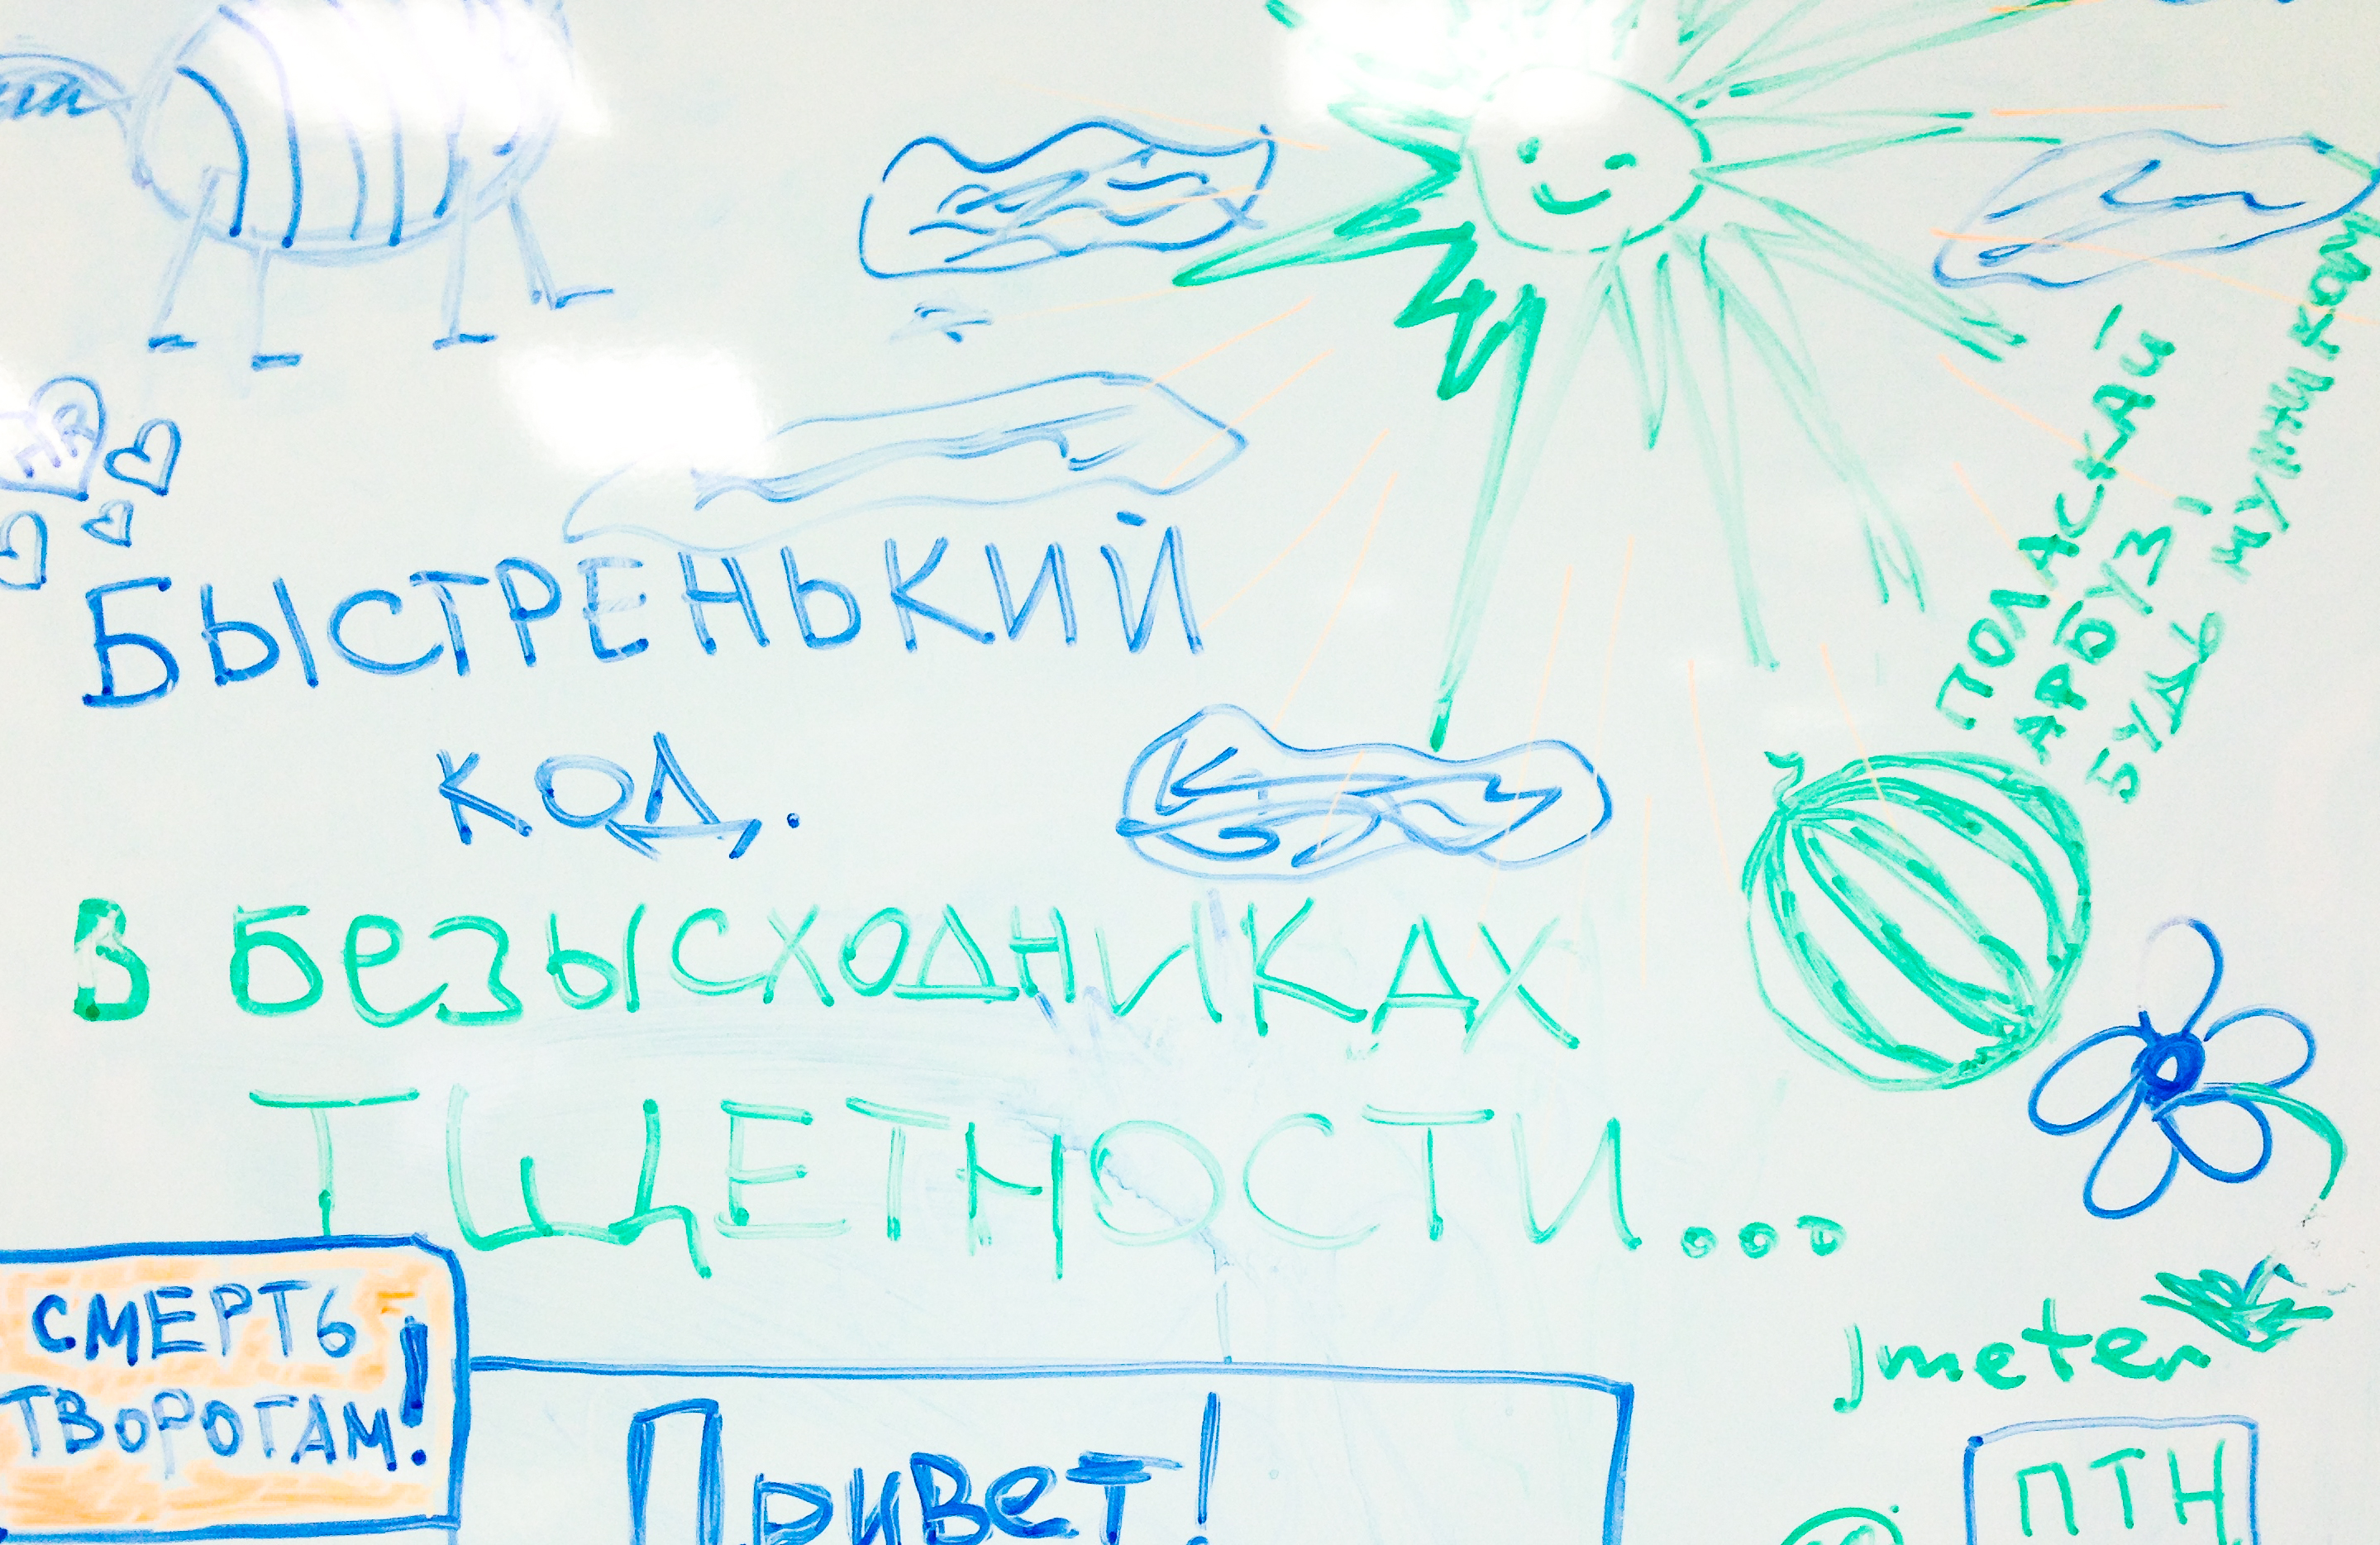 БЫСТРЕНЬКИЙ
КОД.
В БеЗЫСХОДНИКАХ
ТЩЕТНОСТИ...
ПОЛАСКАЙ
АРБУЗ!
БУДЬ МУЖИКОМ
СМЕРТЬ
ТВОРОГАМ!
Привет!
jmeter
ПТН